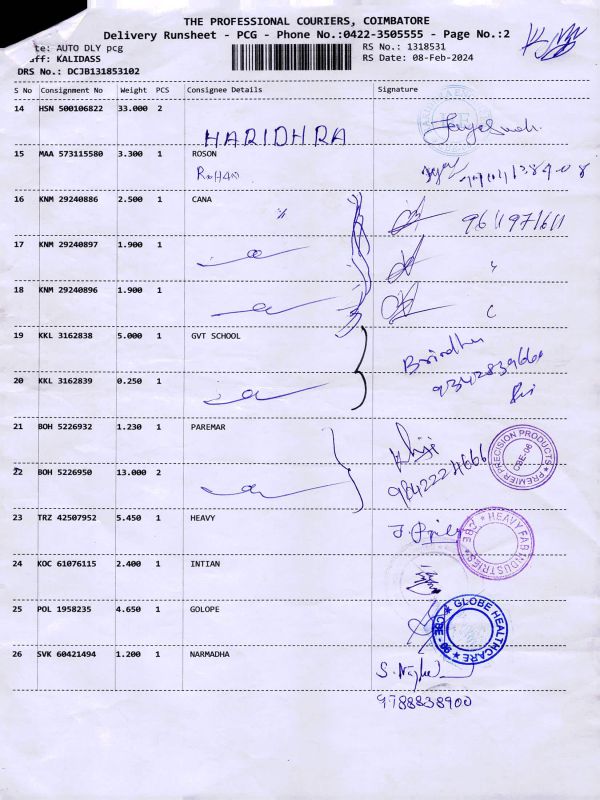 THE PROFESSIONAL COURIERS, COIMBATORE
Delivery Runsheet - PCG - Phone No.:0422-3505555 - Page No.:2
te: AUTO DLY pcg RS No.: 1318531
aff: KALIDASS RS Date: 08-Feb-2024
DRS No.: DCJB131853102
S No Consignment No Weight PCS Consignee Details Signature
14 HSN 500106822 33.000 2
HARIDHRA
15 MAA 573115580 3.300 1 ROSON
ROHAN
16 KNM 29240886 2.500 1 CANA
9611971611
17 KNM 29240897 1.900 1
18 KNM 29240896 1.900 1
19 KKL 3162838 5.000 1 GVT SCHOOL
20 KKL 3162839 0.250 1
21 BOH 5226932 1.230 1 PAREMAR
PREMIER PRECISION PRODUCTS
CBE-06
22 BOH 5226950 13.000 2
9842224666
23 TRZ 42507952 5.450 1 HEAVY
HEAVY FAB INDUSTRIES CBE
24 KOC 61076115 2.400 1 INTIAN
25 POL 1958235 4.650 1 GOLOPE
GLOBE HEALTHCARE
26 SVK 60421494 1.200 1 NARMADHA
9788838900